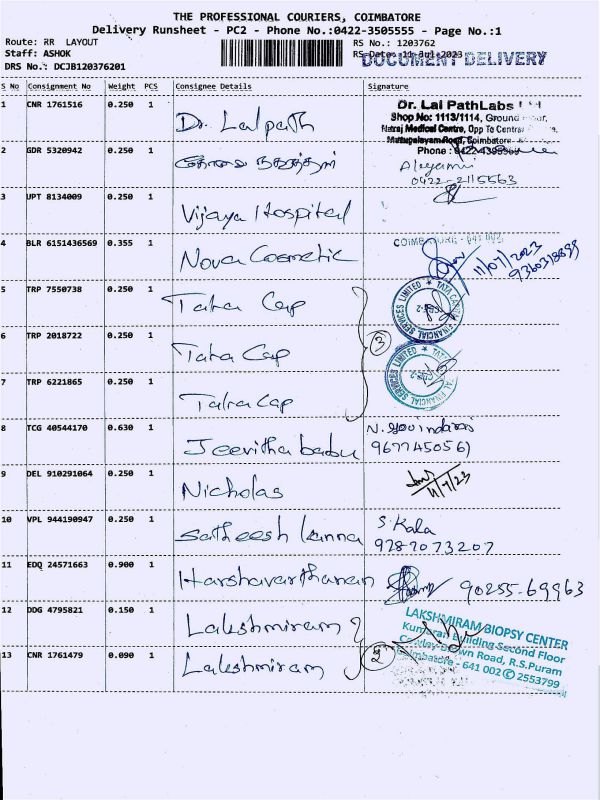 THE PROFESSIONAL COURIERS, COIMBATORE
Delivery Runsheet - PC2 - Phone No.:0422-3505555 - Page No.:1
Route: RR LAYOUT
RS No.: 1203762
Staff: ASHOK
RS Date: 11-Jul-2023
DOCUMENT DELIVERY
DRS No.: DCJB120376201
S No Consignment No Weight PCS Consignee Details Signature
1 CNR 1761516 0.250 1 Dr. Lalpath
Dr. Lal PathLabs
Shop No: 1113/1114, Ground
Natraj Medical Centre, Opp To Central
Mettupalayam Road, Coimbatore
Phone : 0422-4395969
2 GDR 5320942 0.250 1
0422-2115563
3 UPT 8134009 0.250 1 Vijaya Hospital
4 BLR 6151436569 0.355 1 Nova Cosmetic
COIMBATORE - 641 002
11/07/2023
5 TRP 7550738 0.250 1 Tata Cap
6 TRP 2018722 0.250 1 Tata Cap
3
7 TRP 6221865 0.250 1 Tata Cap
TATA CAPITAL FINANCIAL SERVICES LIMITED
CBE-2
TATA CAPITAL FINANCIAL SERVICES LIMITED
CBE-2
8 TCG 40544170 0.630 1 Jeevitha babu N. Govindaraj
9677450561
9 DEL 910291064 0.250 1 Nicholas
11/7/23
10 VPL 944190947 0.250 1 Satheesh kanna S. Kala
9787073207
11 EDQ 24571663 0.900 1 Harshavarthanan 90255-69963
12 DDG 4795821 0.150 1 Lakshmiram
13 CNR 1761479 0.090 1 Lakshmiram
2
LAKSHMIRAM BIOPSY CENTER
Kumaran Building Second Floor
Cowley Brown Road, R.S.Puram
Coimbatore - 641 002 ✆ 2553799